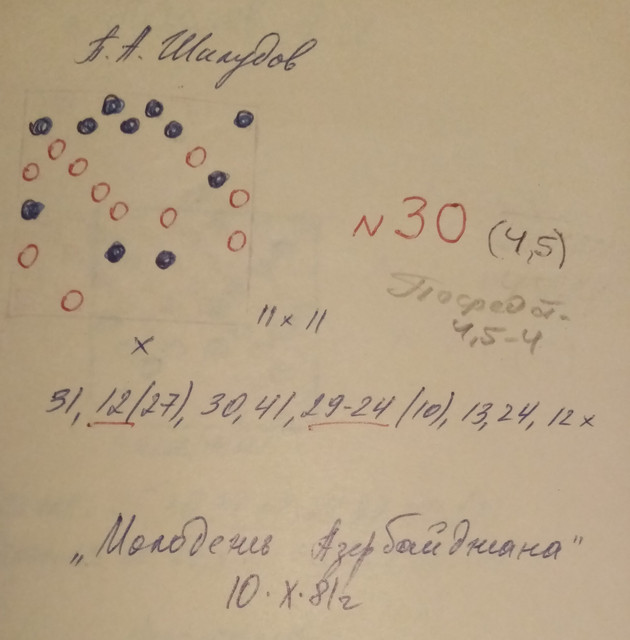 П. А. Шилудов
N 30 (4,5)
Посредст.
4,5-4
11 x 11
x
31, 12(27), 30, 41, 29-24 (10), 13, 24, 12 x
„Молодежь Азербайджана"
10. X. 81 г